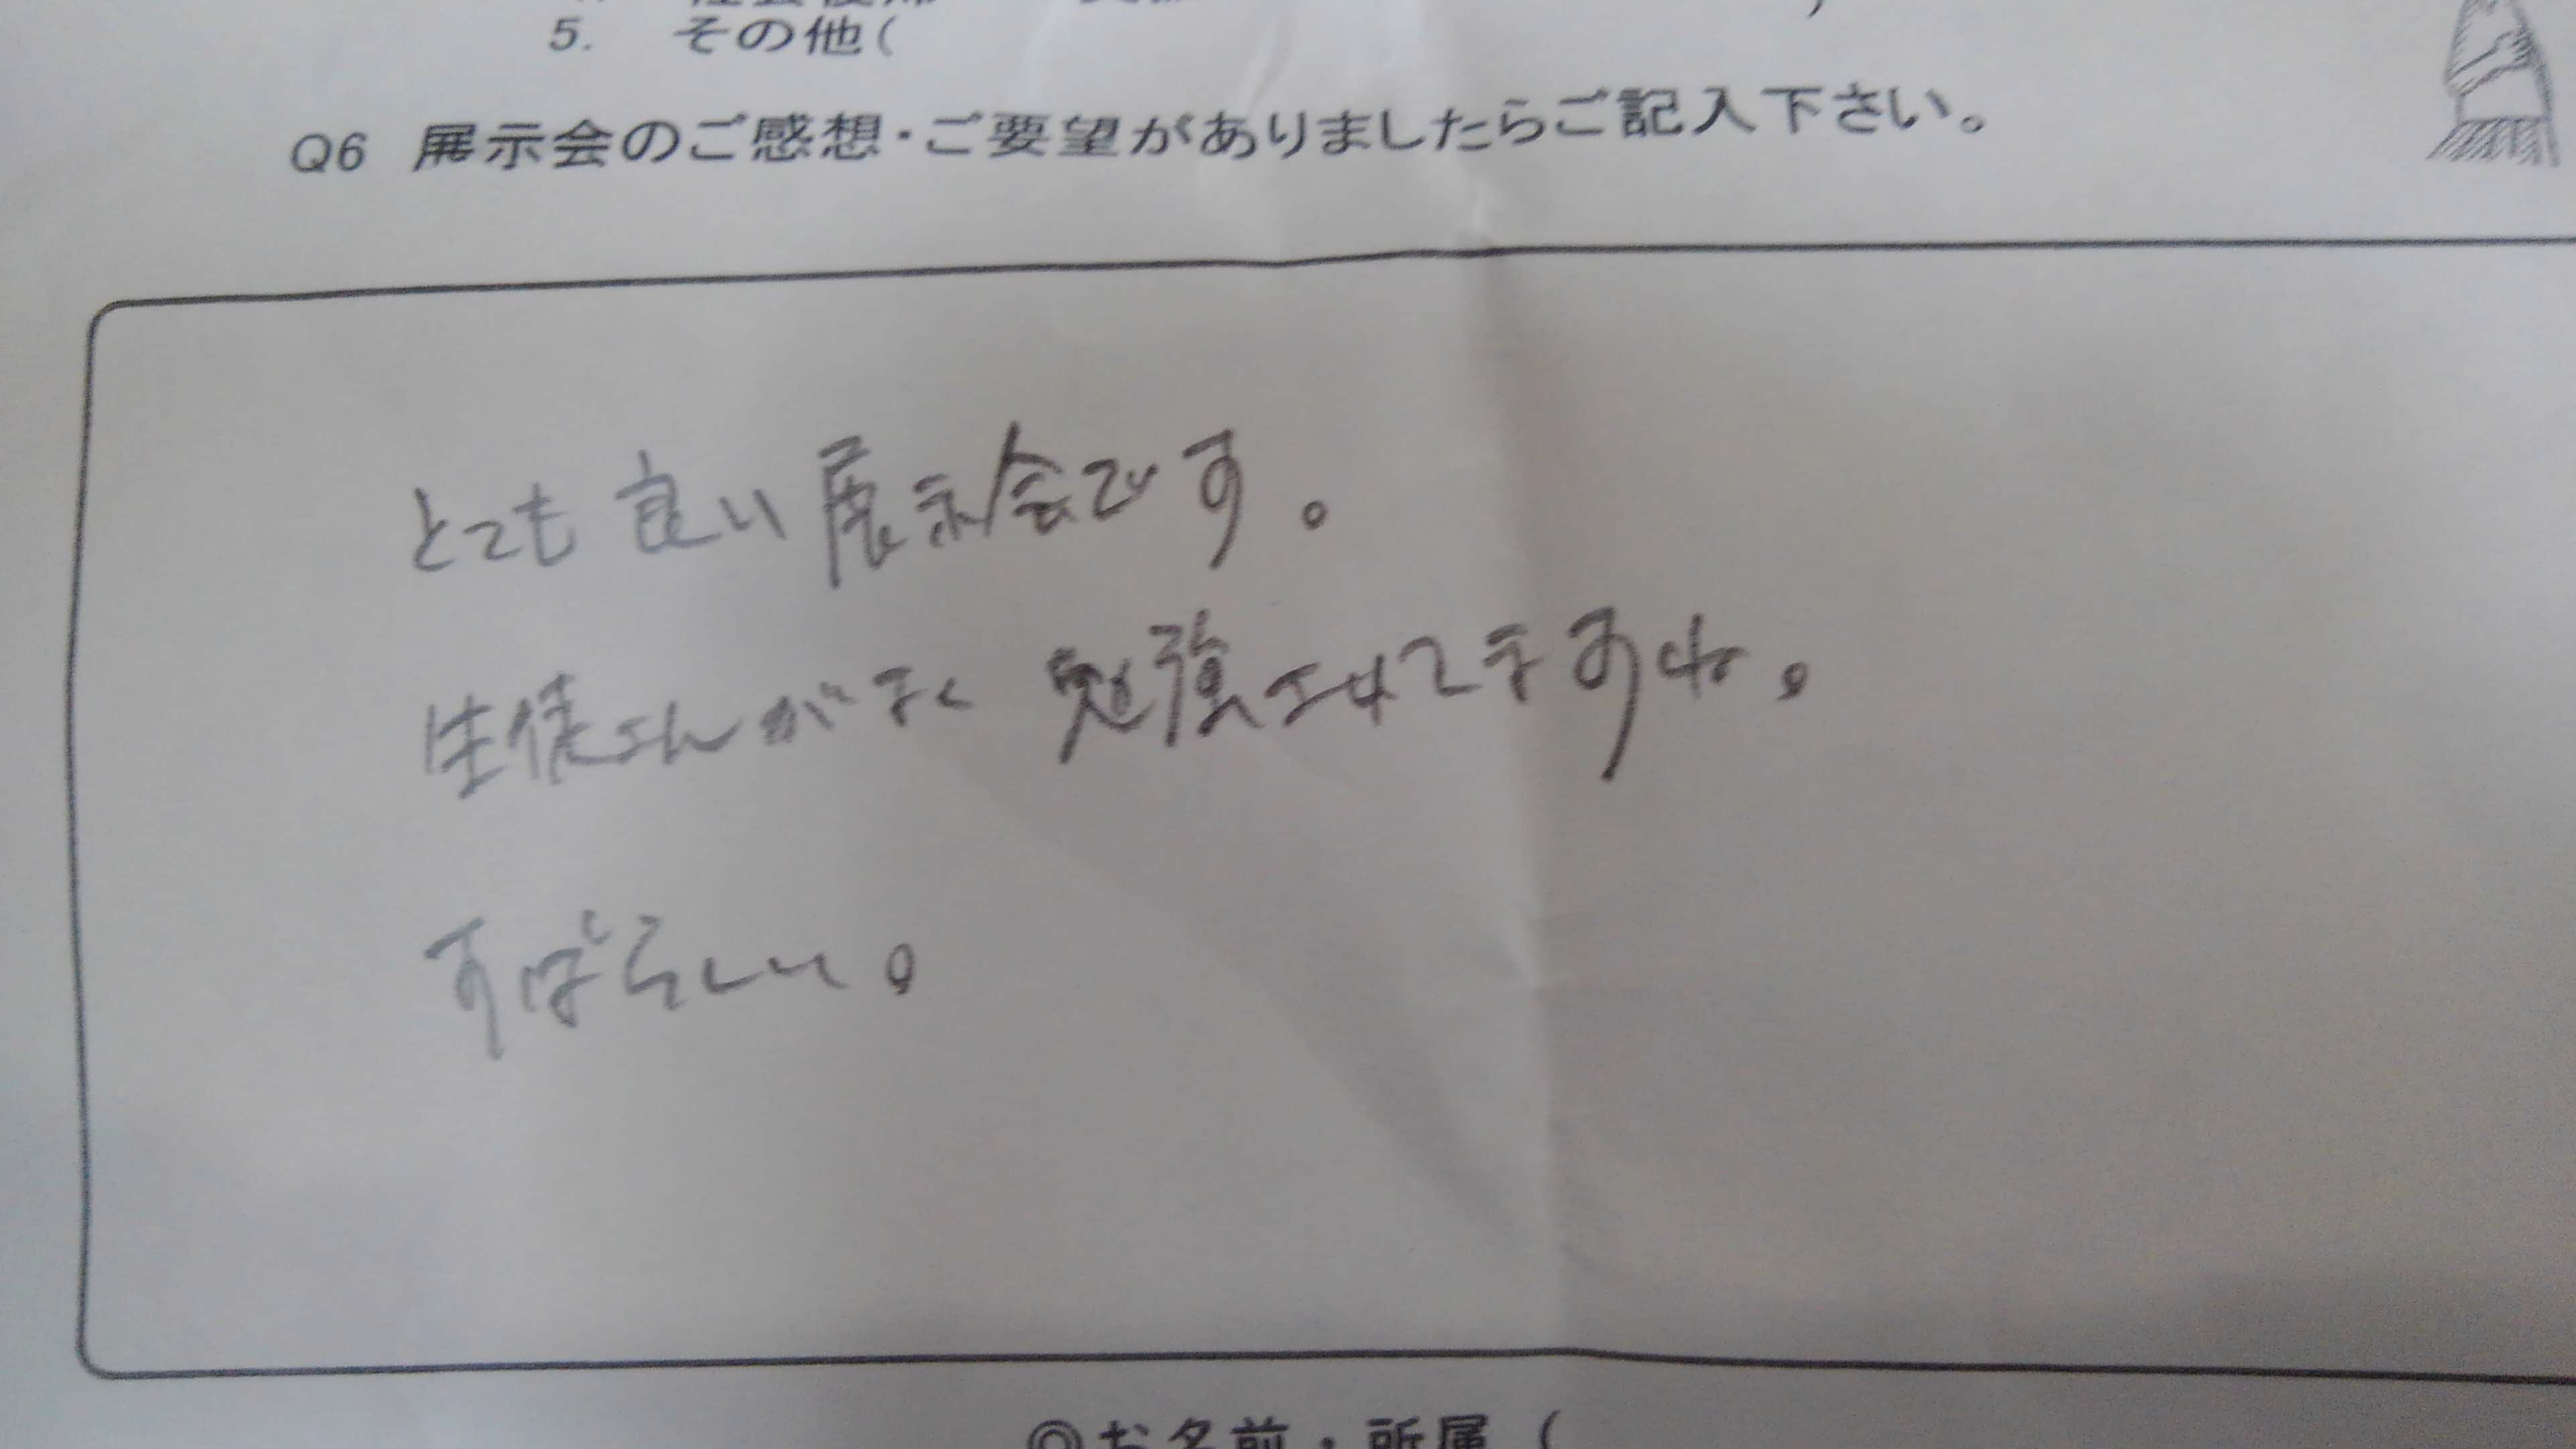 5. その他(
Q6 展示会のご感想・ご要望がありましたらご記入下さい。
とても良い展示会です。
生徒さんがよく勉強されてますね。
すばらしい。
◎お名前・所属(